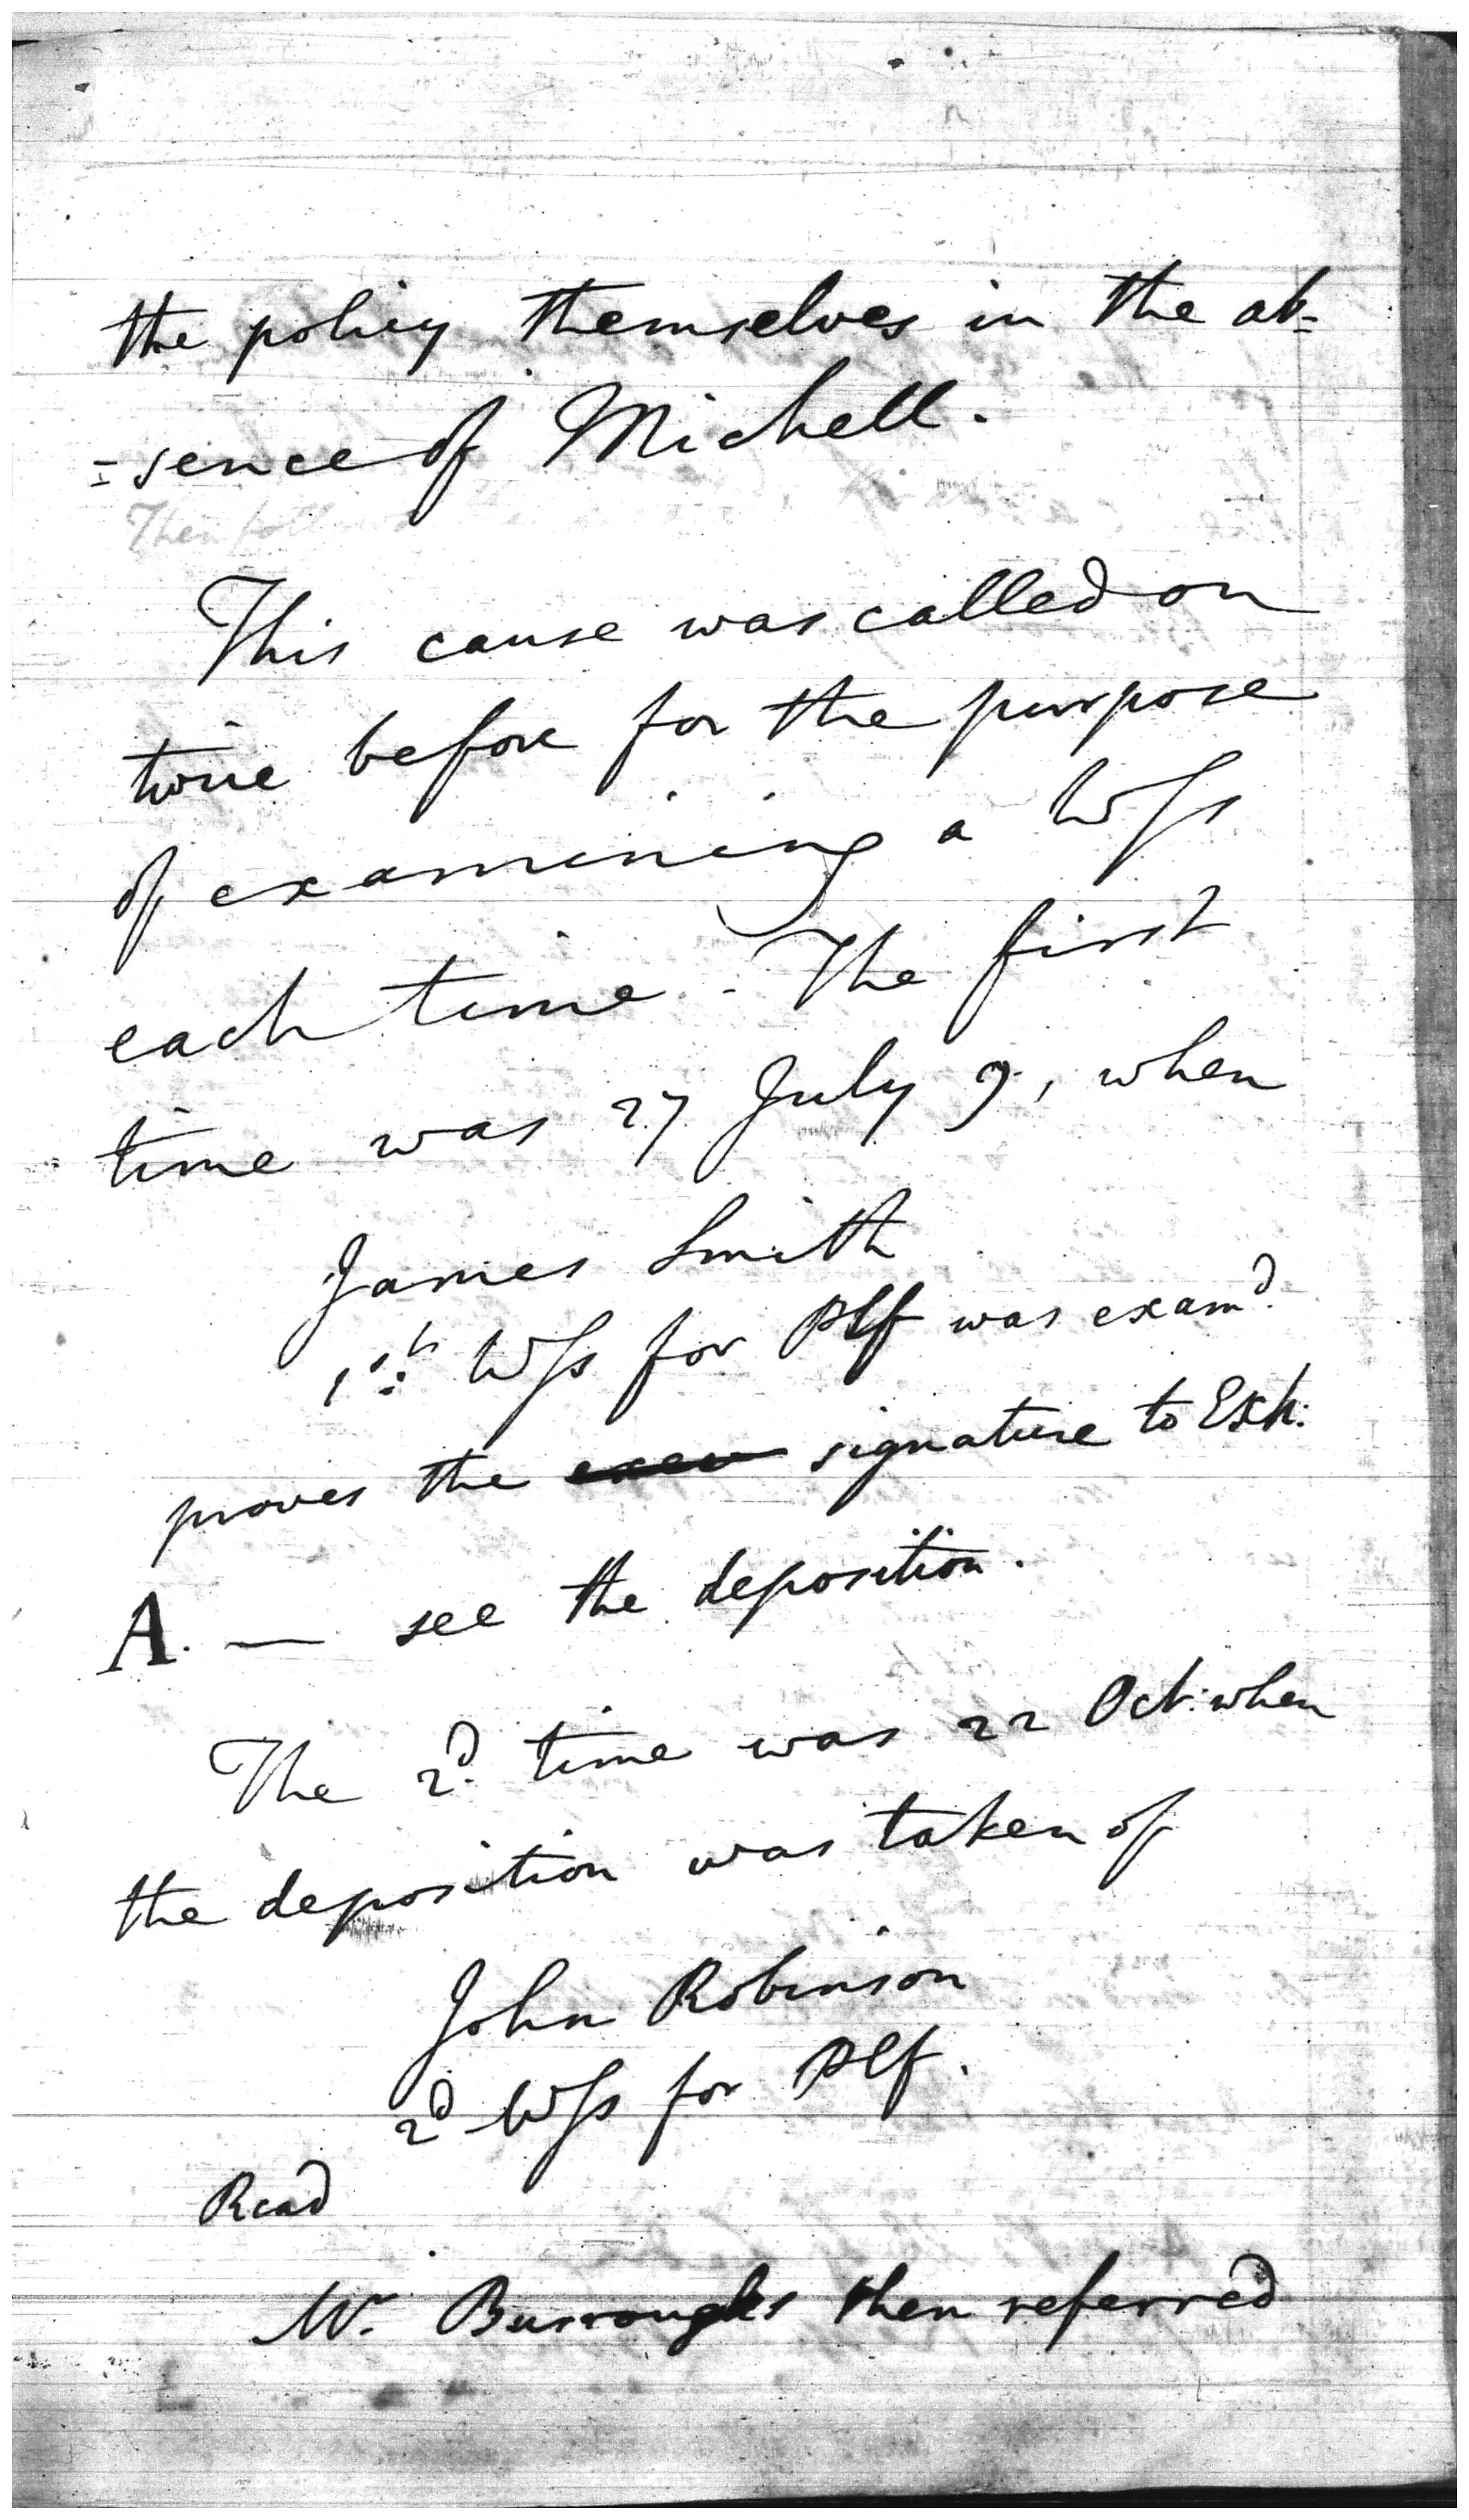 the policy themselves in the ab=
=sence of Michell.
Then
This cause was called on
twice before for the purpose
of examining a Wss
each time. The first
time was 27 July 9, when
James Smith
1st Wss for Plf was examd.
proves the signature to Exh:
A. — see the deposition.
The 2d. time was 22 Oct: when
the deposition was taken of
John Robinson
2d Wss for Plf.
Read
Mr. Burroughs then referred